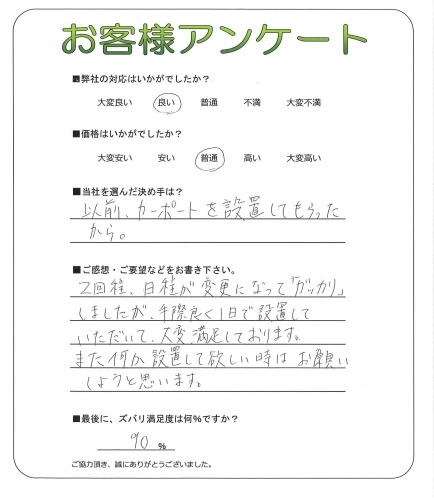 お客様アンケート
■弊社の対応はいかがでしたか？
大変良い 良い 普通 不満 大変不満
■価格はいかがでしたか？
大変安い 安い 普通 高い 大変高い
■当社を選んだ決め手は？
以前、カーポートを設置してもらった
から。
■ご感想・ご要望などをお書き下さい。
2回程、日程が変更になって「ガッカリ」
しましたが、手際良く1日で設置して
いただいて、大変満足しております。
また何か設置して欲しい時はお願い
しようと思います。
■最後に、ズバリ満足度は何％ですか？
90 ％
ご協力頂き、誠にありがとうございました。